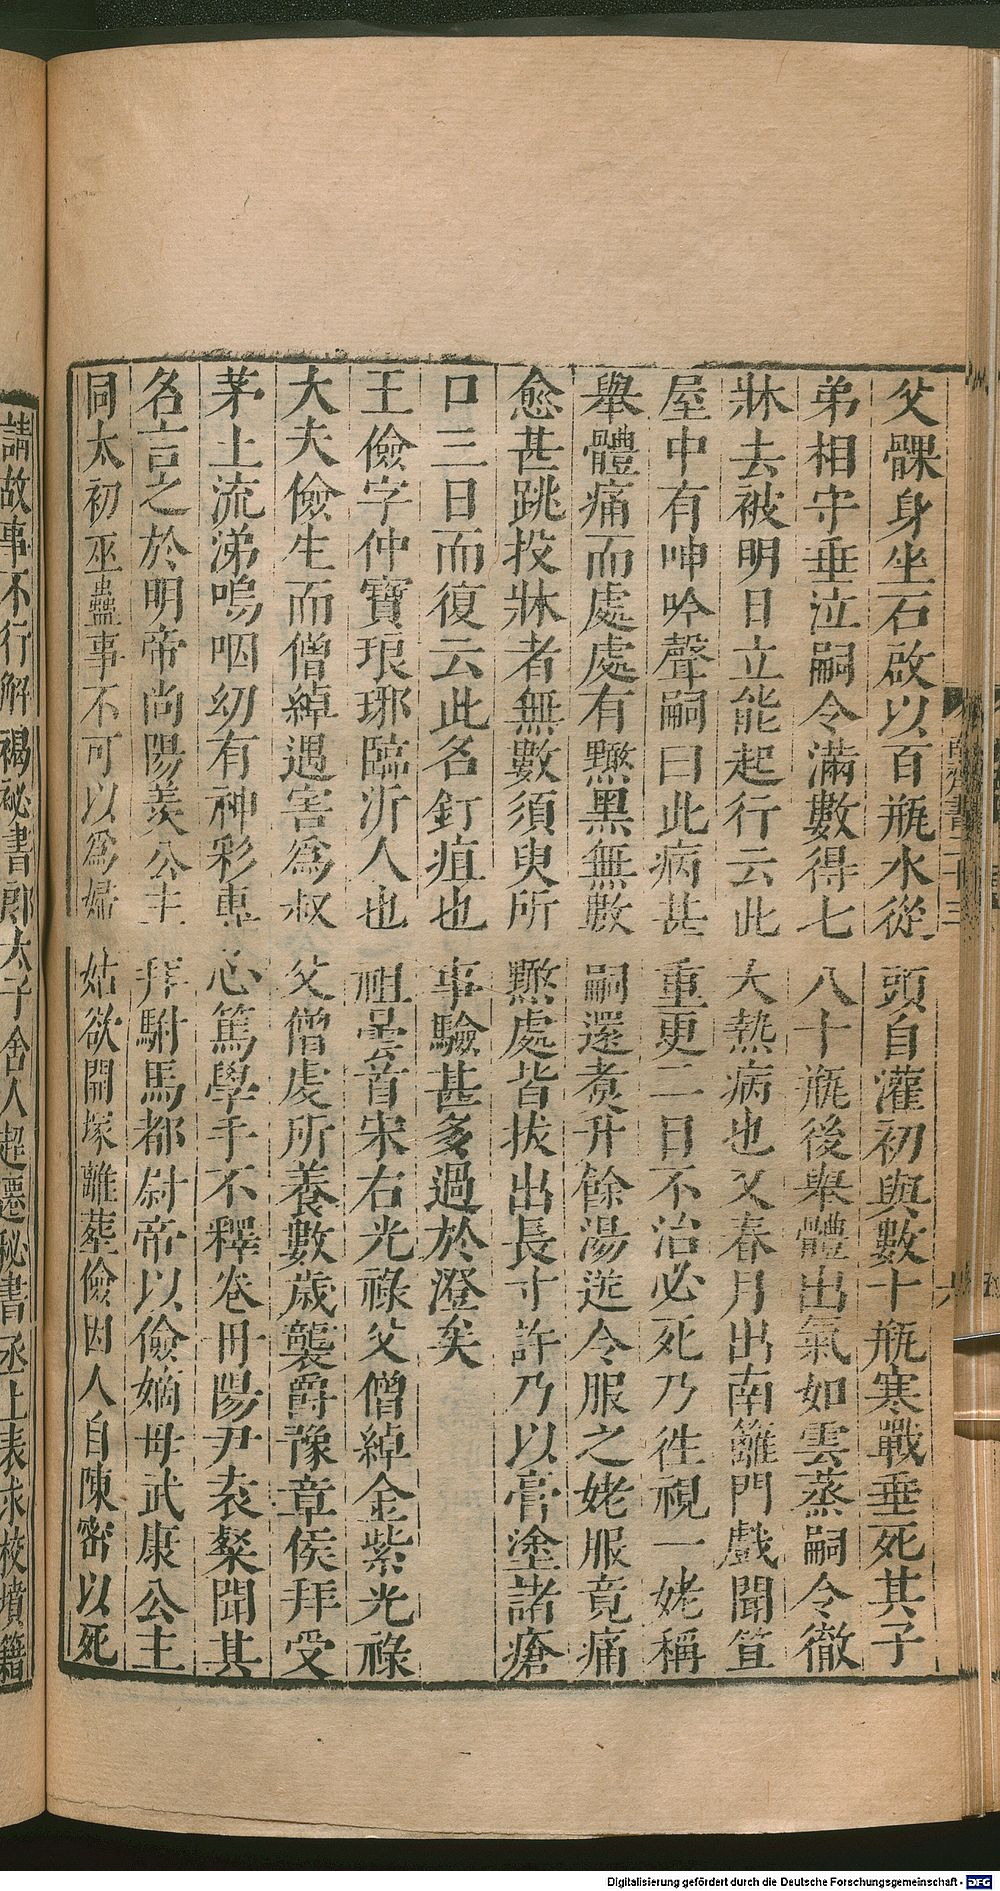 父髁身坐石啟以百瓶水從頭自灌初與數十瓶寒戰垂死其子
弟相守垂泣嗣令滿數得七八十瓶後舉體出氣如雲蒸嗣令徹
牀去被明日立能起行云此大熱病也又春月出南籬門戲聞笪
屋中有呻吟聲嗣曰此病甚重更二日不治必死乃徃視一姥稱
舉體痛而處處有黶黑無數嗣還煑升餘湯送令服之姥服竟痛
愈甚跳投牀者無數須臾所黶處皆拔出長寸許乃以膏塗諸瘡
口三日而復云此名釘疽也事驗甚多過於澄矣
王儉字仲寶琅琊臨沂人也祖曇首宋右光祿父僧綽金紫光祿
大夫儉生而僧綽遇害爲叔父僧虔所養數歲襲爵豫章侯拜受
茅土流涕嗚咽幼有神彩專心篤學手不釋卷丹陽尹袁粲聞其
名言之於明帝尚陽羨公主拜駙馬都尉帝以儉嫡母武康公主
同太初巫蠱事不可以爲婦姑欲開塚離葬儉因人自陳密以死
請故事不行解褐祕書郎太子舍人超遷秘書丞上表求校墳籍
南齊書二十三
六
Digitalisierung gefördert durch die Deutsche Forschungsgemeinschaft - DFG